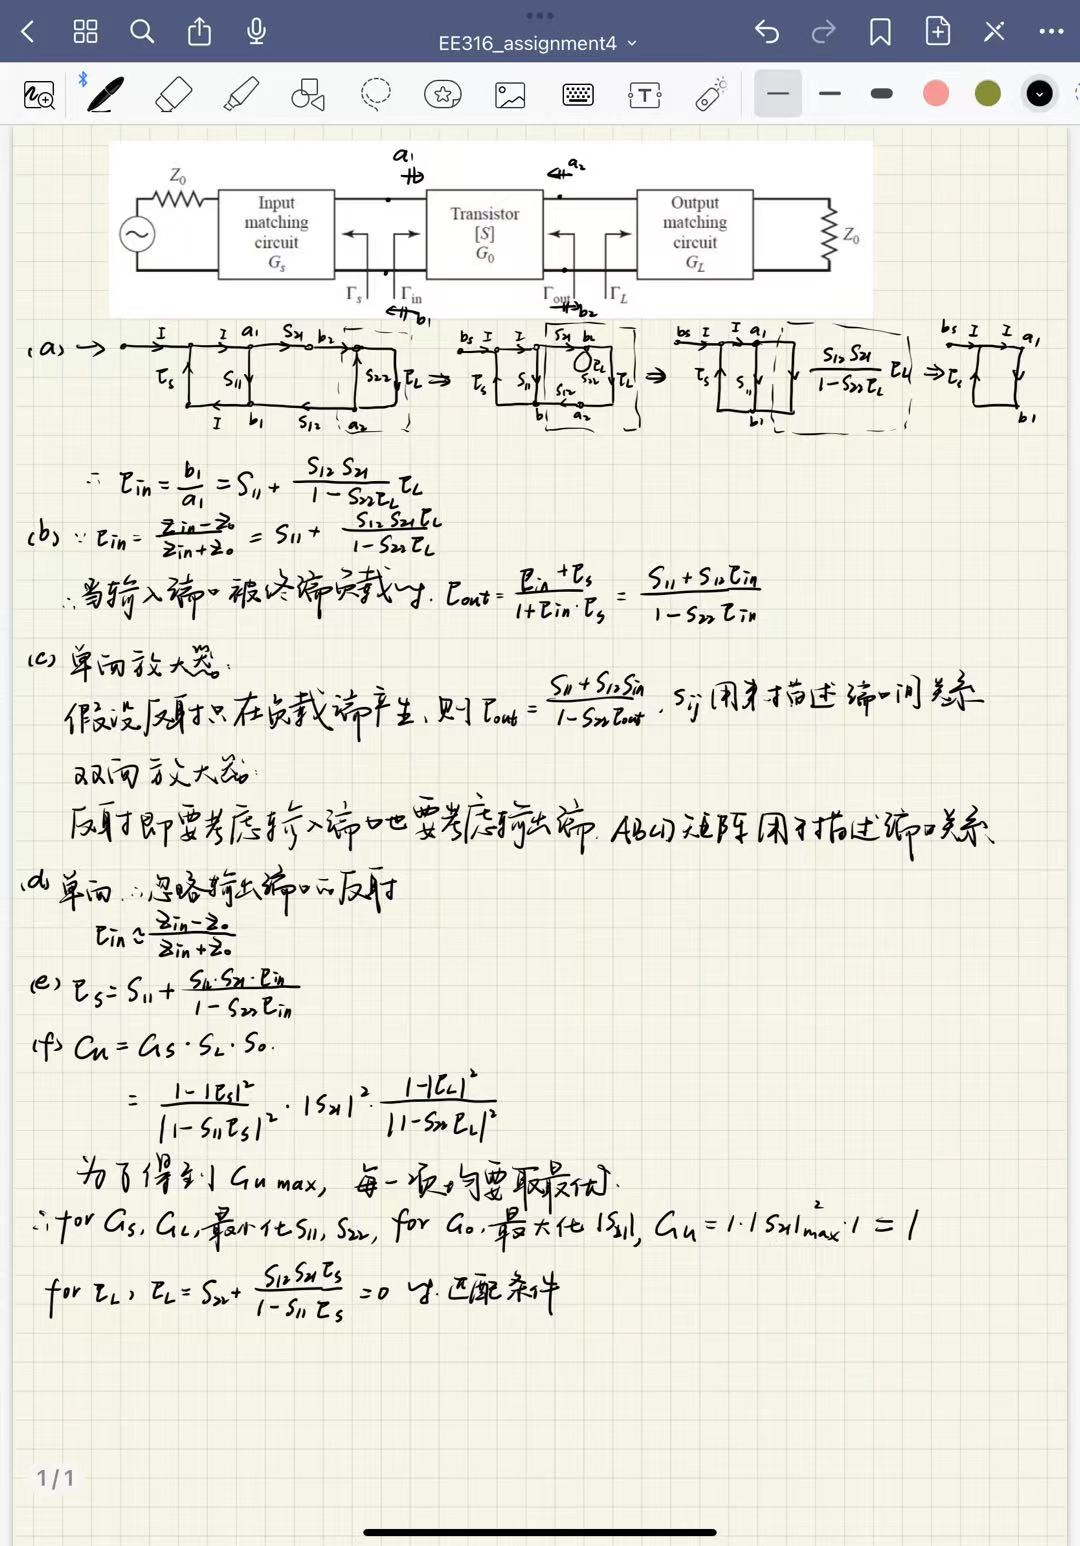 EE316_assignment4
a₁
a₂
Z₀
Input matching circuit Gₛ
Transistor [S] G₀
Output matching circuit G_L
Z₀
Γₛ Γin Γout Γ_L
b₁ b₂
(a) → I I a₁ S₂₁ b₂ ⇒ bₛ I I S₂₁ b₂ ⇒ bₛ I I a₁ ⇒ bₛ I I a₁
Γₛ S₁₁ S₂₂ Γ_L Γₛ S₁₁ S₂₂ Γ_L Γₛ S₁₁ S₁₂S₂₁/(1-S₂₂Γ_L) Γ_L Γₛ
I b₁ S₁₂ a₂ b₁ S₁₂ a₂ b₁ b₁
∴ Γin = b₁/a₁ = S₁₁ + S₁₂S₂₁/(1-S₂₂Γ_L) Γ_L
(b) ∵ Γin = (Zin-Z₀)/(Zin+Z₀) = S₁₁ + S₁₂S₂₁Γ_L/(1-S₂₂Γ_L)
∴ 当输入端口被终端负载时. Γout = (Γin+Γₛ)/(1+Γin·Γₛ) = (S₁₁+S₁₂Γin)/(1-S₂₂Γin)
(c) 单向放大器:
假设反射只在负载端产生, 则 Γout = (S₁₁+S₁₂Sin)/(1-S₂₂Γout), Sij 用来描述端口间关系
双向放大器:
反射即要考虑输入端口也要考虑输出端. ABCD矩阵用于描述端口关系、
(d) 单向 ∴ 忽略输出端口的反射
Γin ≈ (Zin-Z₀)/(Zin+Z₀)
(e) Γₛ = S₁₁ + S₁₂·S₂₁·Γin/(1-S₂₂Γin)
(f) Gu = Gₛ·S_L·S₀.
= (1-|Γₛ|²)/|1-S₁₁Γₛ|² · |S₂₁|² · (1-|Γ_L|²)/|1-S₂₂Γ_L|²
为了得到 Gu max, 每一项均要取最优.
∴ for Gₛ, G_L, 最小化 S₁₁, S₂₂, for G₀, 最大化 |S₂₁|, Gu = 1·|S₂₁|²max·1 = 1
for Γ_L, Γ_L = S₂₂ + S₁₂S₂₁Γₛ/(1-S₁₁Γₛ) = 0 时. 匹配条件
1/1